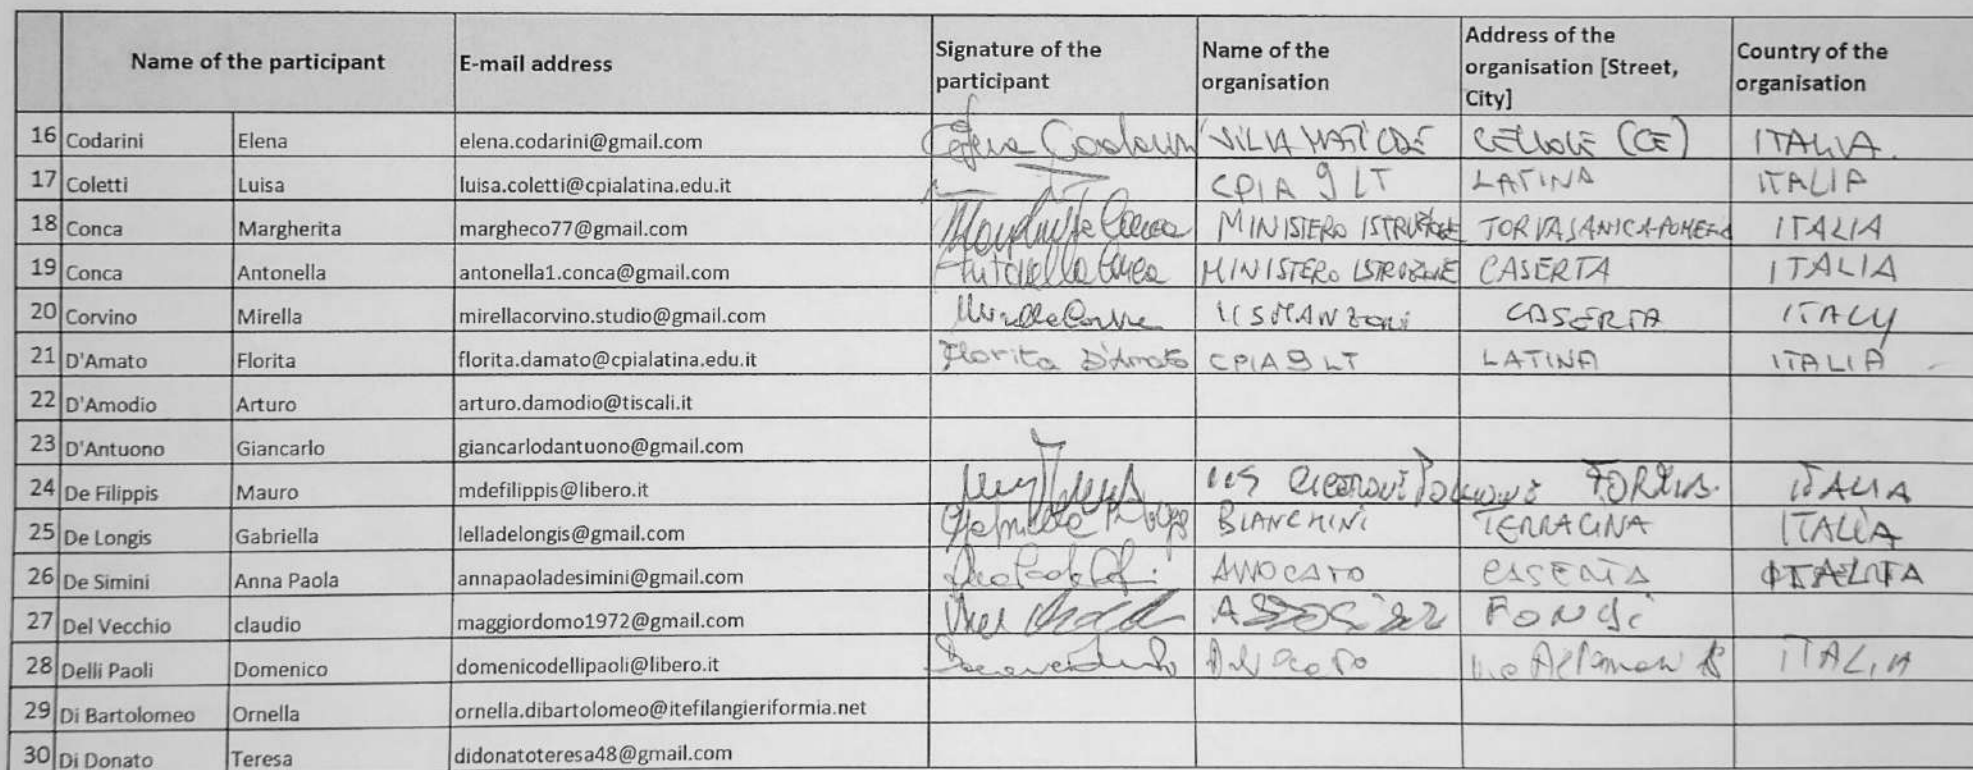 Name of the participant E-mail address Signature of the participant Name of the organisation Address of the organisation [Street, City] Country of the organisation
16 Codarini Elena elena.codarini@gmail.com CELLOLE (CE) ITALIA
17 Coletti Luisa luisa.coletti@cpialatina.edu.it CPIA 9 LT LATINA ITALIA
18 Conca Margherita margheco77@gmail.com MINISTERO ISTRUZIONE ITALIA
19 Conca Antonella antonella1.conca@gmail.com Antonella Conca MINISTERO ISTRUZIONE CASERTA ITALIA
20 Corvino Mirella mirellacorvino.studio@gmail.com MANZONI CASERTA ITALY
21 D'Amato Florita florita.damato@cpialatina.edu.it Florita D'Amato CPIA 9 LT LATINA ITALIA
22 D'Amodio Arturo arturo.damodio@tiscali.it
23 D'Antuono Giancarlo giancarlodantuono@gmail.com
24 De Filippis Mauro mdefilippis@libero.it ITALIA
25 De Longis Gabriella lelladelongis@gmail.com BIANCHINI TERRACINA ITALIA
26 De Simini Anna Paola annapaoladesimini@gmail.com AVVOCATO ITALIA
27 Del Vecchio claudio maggiordomo1972@gmail.com FONDI
28 Delli Paoli Domenico domenicodellipaoli@libero.it ITALIA
29 Di Bartolomeo Ornella ornella.dibartolomeo@itefilangieriformia.net
30 Di Donato Teresa didonatoteresa48@gmail.com